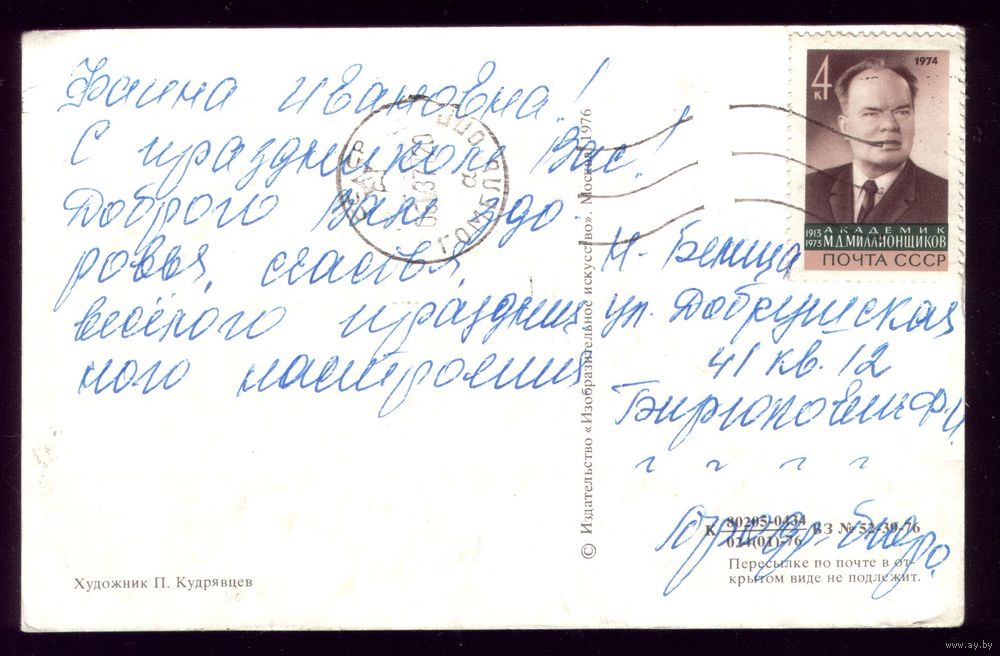 Фаина Ивановна!
С праздником Вас!
Доброго Вам здо
ровья, счастья,
весёлого праздник
ного настроения
4 к
1974
1913
1973
АКАДЕМИК
М.Д.МИЛЛИОНЩИКОВ
ПОЧТА СССР
Н-Белица
ул. Добрушская
41 кв. 12
© Издательство «Изобразительное искусство». Москва. 1976
К 80205-0434
024(01)-76 БЗ № 52-39-76
Пересылке по почте в от-
крытом виде не подлежит.
Художник П. Кудрявцев
www.ay.by